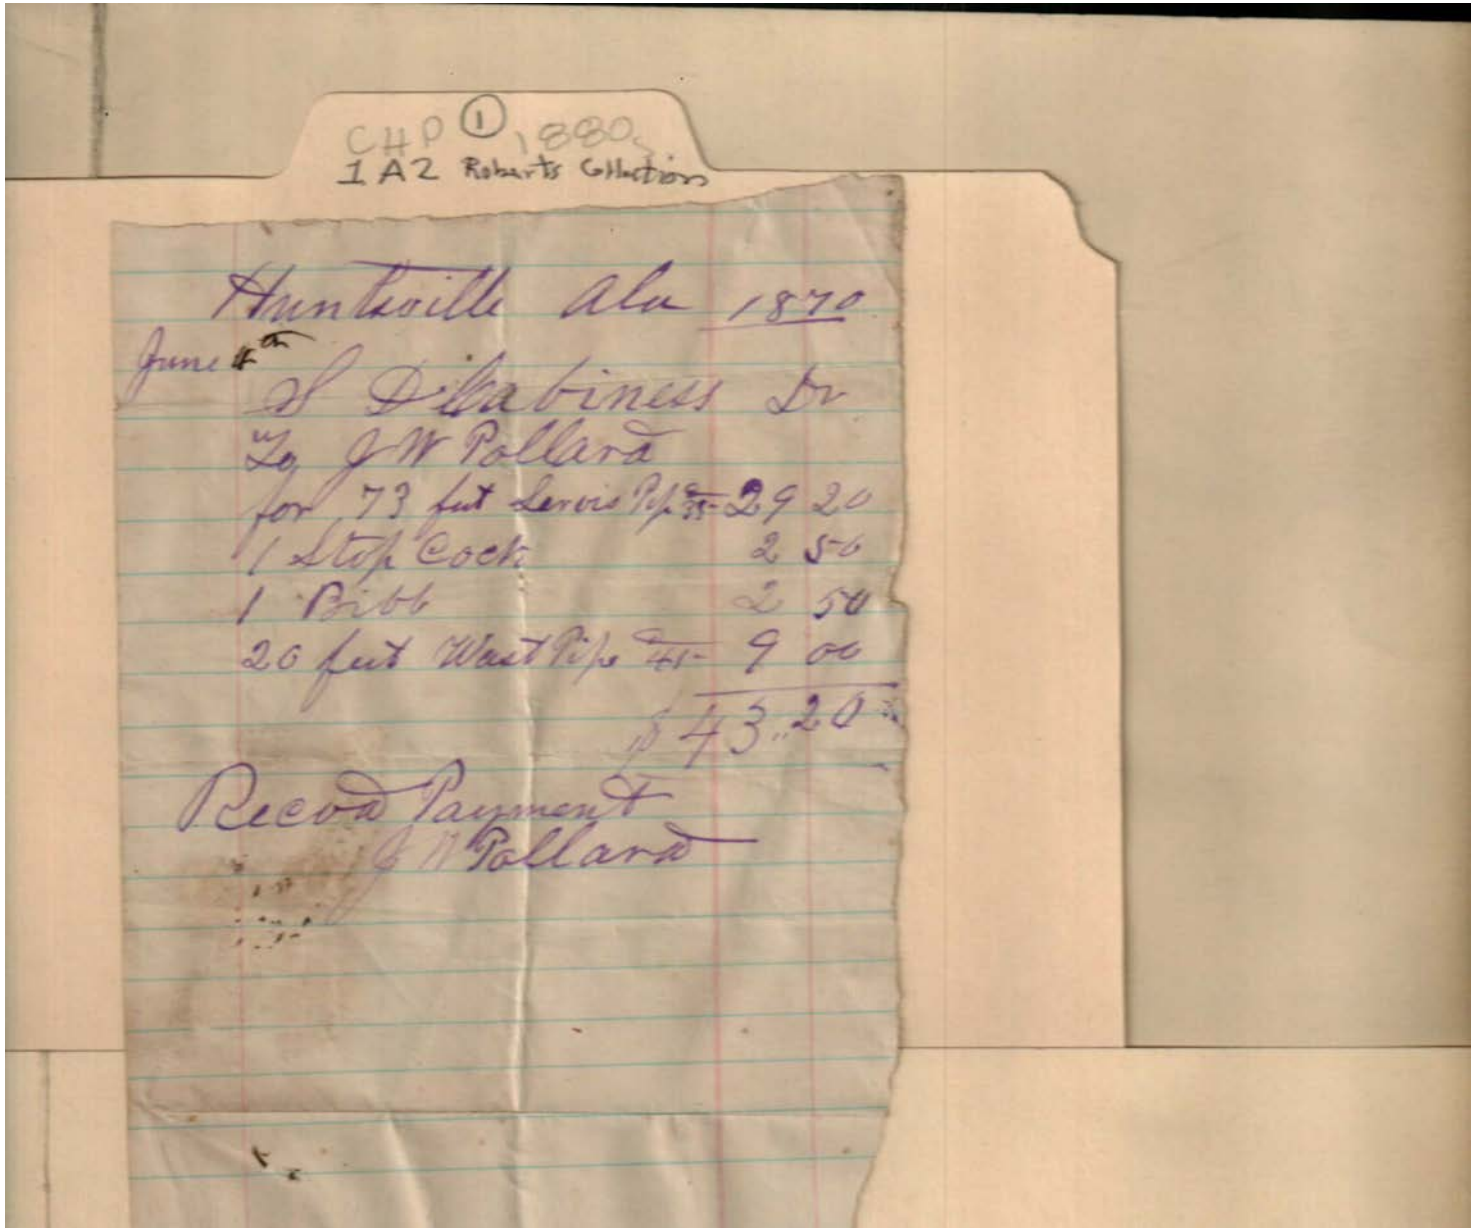 CHP ① 1880s
1A2 Roberts Collection
Huntsville Ala 1870
June th
S D Cabiness Dr
To J W Pollard
for 73 feet Servis Pipe 29 20
1 Stop Cock 2 50
1 Bibb 2 50
20 feet Wast Pipe 45 9 00
$ 43.. 20
Recvd Payment
J W Pollard